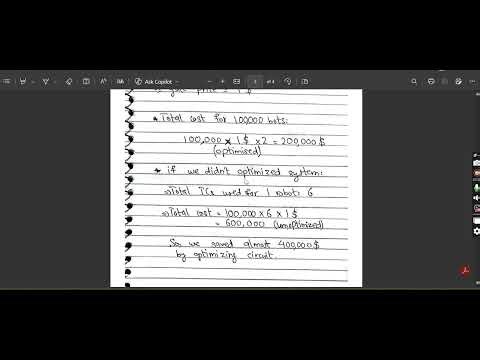 Ask Copilot
price = 1 $
* Total cost for 100000 bots:
100,000 × 1$ × 2 = 200,000 $
(optimised)
* if we didn't optimized system:
⇒ Total ICs used for 1 robot: 6
⇒ Total cost = 100,000 × 6 × 1 $
= 600,000 (unoptimized)
So we saved almost 400,000 $
by optimizing circuit.